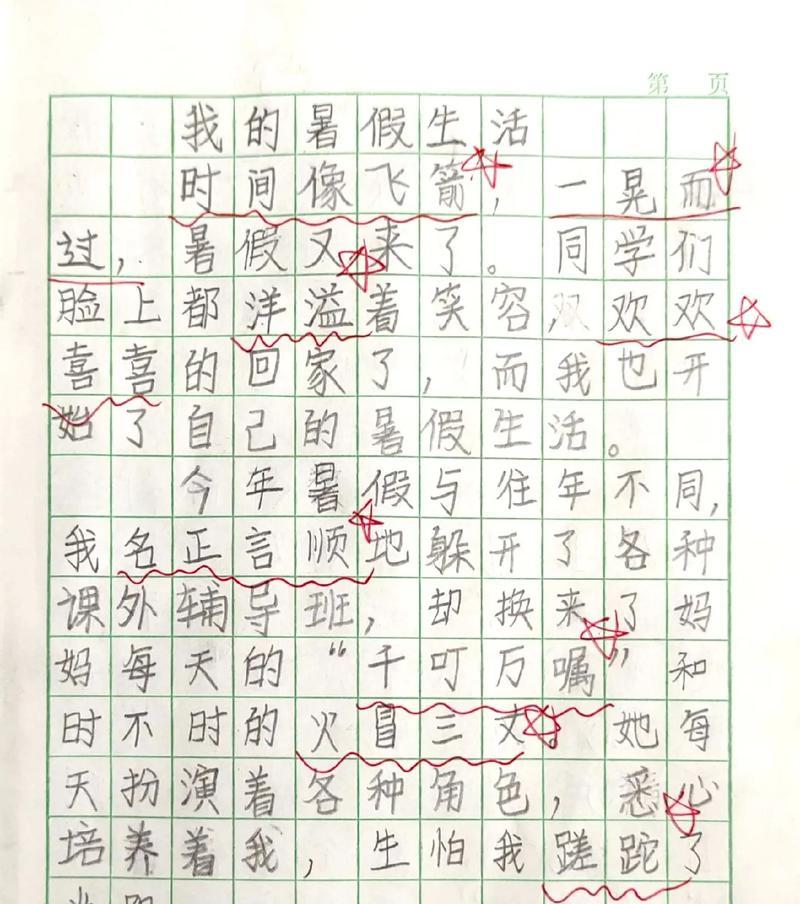 第 页
我的暑假生活
时间像飞箭，一晃而
过，暑假又来了。同学们
脸上都洋溢着笑容，双欢欢
喜喜的回家了，而我也开
始了自己的暑假生活。
今年暑假与往年不同，
我名正言顺地躲开了各种
课外辅导班，却换来了妈
妈每天的“千叮万嘱”和
时不时的火冒三丈。她每
天扮演着各种角色，悉心
培养着我，生怕我蹉跎了